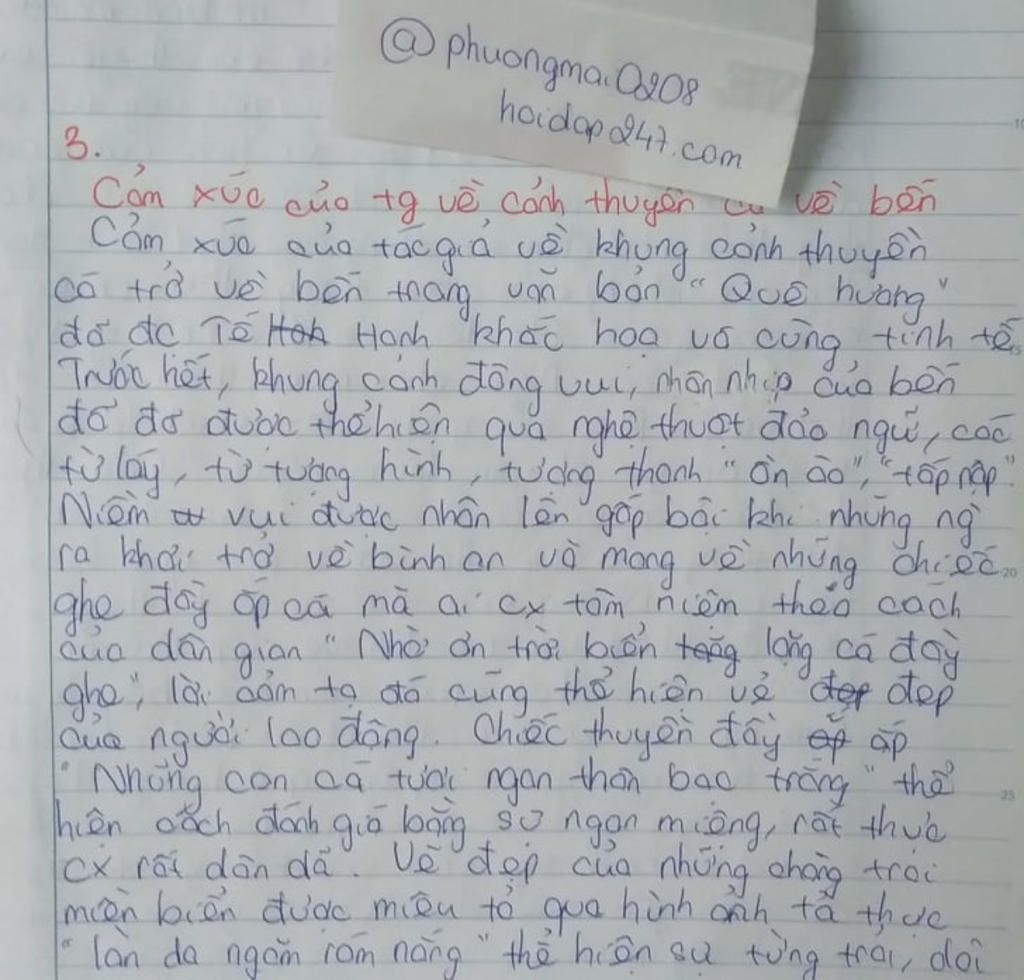 @phuongmai0208
hoidap247.com
3.
Cảm xúc của tg về cảnh thuyền cá về bến
Cảm xúc của tác giả về khung cảnh thuyền
cá trở về bến trong văn bản "Quê hương"
đã đc Tế Hanh khắc hoạ vô cùng tinh tế.
Trước hết, khung cảnh đông vui, nhộn nhịp của bến
đỗ đã được thể hiện qua nghệ thuật đảo ngữ, các
từ láy, từ tượng hình, tượng thanh "ồn ào", "tấp nập".
Niềm vui được nhân lên gấp bội khi những ng
ra khơi trở về bình an và mang về những chiếc
ghe đầy ắp cá mà ai cx tâm niệm theo cách
của dân gian "Nhờ ơn trời biển lặng cá đầy
ghe", lời cảm tạ đó cũng thể hiện vẻ đẹp
của người lao động. Chiếc thuyền đầy ắp
"Những con cá tươi ngon thân bạc trắng" thể
hiện cách đánh giá bằng sự ngon miệng, rất thực
cx rất dân dã. Vẻ đẹp của những chàng trai
miền biển được miêu tả qua hình ảnh tả thực
"làn da ngăm rám nắng" thể hiện sự từng trải, dại